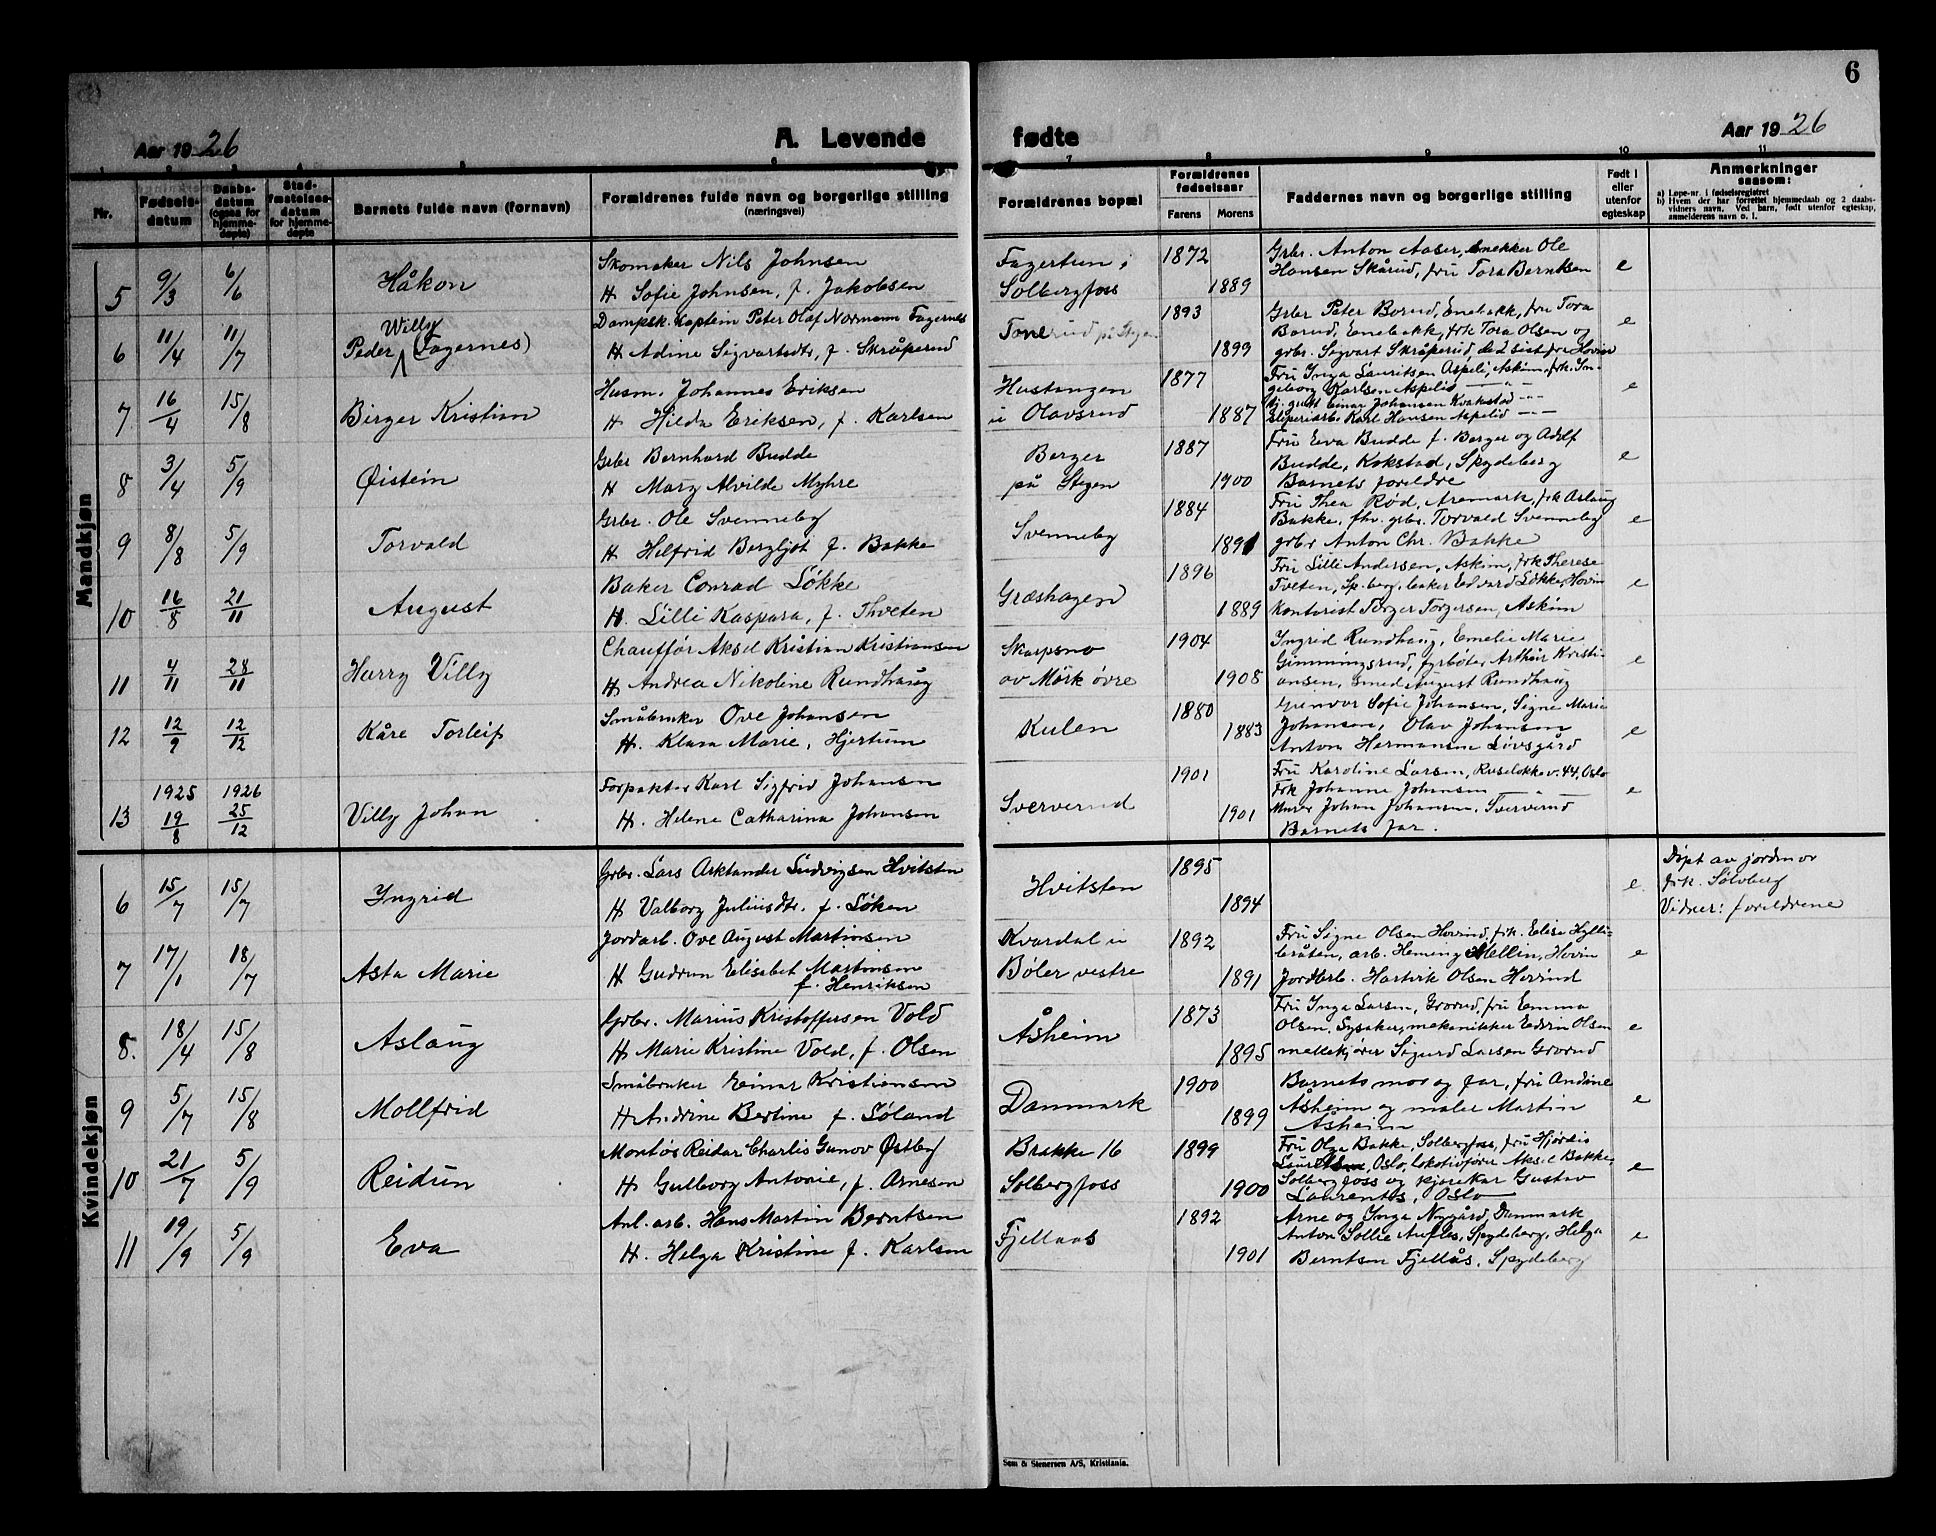 6
Aar 1926 A. Levende fødte Aar 1926
1 2 3 4 5 6 7 8 9 10 11
Nr.
Fødselsdatum
Daabsdatum (ogsaa for hjemmedøpte)
Stadfæstelsesdatum for hjemmedøpte
Barnets fulde navn (fornavn)
Forældrenes fulde navn og borgerlige stilling
(næringsvei)
Forældrenes bopæl
Forældrenes fødselsaar
Farens Morens
Faddernes navn og borgerlige stilling
Født i eller utenfor egteskap
Anmerkninger
saasom:
a) Løpe-nr. i fødselsregistret
b) Hvem der har forrettet hjemmedaab og 2 daabsvidners navn. Ved barn, født utenfor egteskap, anmelderens navn o. l.
Mandkjøn
5 9/3 6/6 Håkon
Skomaker Nils Johnsen
H Sofie Johnsen, f. Jakobsen
Fagertun i
Solbergfoss
1872
1889
Grbr. Anton Aaser, snekker Ole
Hansen Skårud, fru Tora Berntsen
e
6 11/4 11/7 Peder Willy (Fagernes)
Dampsk. kaptein Peter Olaf Normann Fagernes
H Adine Sigvartsdtr, f. Skråperud
Tonerud på Stegen
1893
1899
Grbr Peter Borud, Enebakk, fru Tora
Borud, Enebakk, frk Tora Olsen og
grbr. Sigvart Skråperud, de 2 sist fra Hovin
e
7 16/4 15/8 Birger Kristian
Husm. Johannes Eriksen
H Hilda Eriksen, f. Karlsen
Hustangen
u Olavsrud
1877
1887
Fru Inga Lauritsen Aspeli, Askim, frk. In-
geborg Karlsen Aspelid — " —
gutt Einar Johansen Kvakstad — " —
Sliperiarb. Karl Hansen Aspelid — " —
e
8 3/4 5/9 Øistein
Grbr Bernhard Budde
H Mary Alvilde Myhre
Berger
på Stegen
1887
1900
Fru Eva Budde f. Berger og Adolf
Budde, Kokstad, Spydeberg
Barnets foreldre
e
9 8/8 5/9 Torvald
Grbr. Ole Svenneby
H Helfrid Bergljot f. Bakke
Svenneby
1884
1891
Fru Thea Rød, Aremark, frk Aslaug
Bakke, fhv. grbr. Torvald Svenneby
grbr Anton Chr. Bakke
e
10 16/8 21/11 August
Baker Conrad Løkke
H. Lilli Kaspara, f. Thveten
Græshagen
1896
1889
Fru Lilli Andersen, Askim, frk Therese
Tveten, Sp.berg, baker Edvard Løkke, Hovin
Kontorist Torger Torgersen, Askim
e
11 4/11 28/11 Harry Villy
Chauffør Aksel Kristian Kristiansen
H Andrea Nikoline Rundhaug
Skarpsno
av Mörk övre
1904
1908
Ingrid Rundhaug, Emelie Marie
Gimmingsrud, fyrbøter Arthur Kristi-
ansen, Smed August Rundhaug
e
12 12/9 12/12 Kåre Torleif
Småbruker Ove Johansen
H. Klara Marie, Hjertum
Kulen
1880
1883
Grenvor Sofie Johansen, Signe Marie
Johansen, Olav Johansen
Anton Hermansen Løvsgård
e
13 1925 19/8 1926 25/12 Villy Johan
Forpakter Karl Sigfrid Johansen
H. Helene Catharina Johansen
Sververud
1901
1901
Fru Karoline Larsen, Ruseløkkv. 44, Oslo
Frk Johanne Johansen — " —
Murer Johan Johansen, Sververud
Barnets far.
e
Kvindekjøn
6 15/7 15/7 Ingrid
Grbr. Lars Arktander Ludvigsen Hvitsten
H Valborg Juliusdtr. f. Løken
Hvitsten
1895
1894
e.
Døpt av jordmor
frk. Sølvberg
Vidner: foreldrene
7 17/1 18/7 Asta Marie
Jordarb. Ove August Martinsen
H Gudrun Elisabet Martinsen
f. Henriksen
Kvardal u
Bøler vestre
1892
1891
Fru Signe Olsen Hovind, frk. Elise Hylli-
bråten, arb. Heming Mellin, Hovin
Jordarb. Hartvik Olsen Hovind
e
8. 18/4 15/8 Aslaug
Grbr. Marius Kristoffersen Vold
H Marie Kristine Vold, f. Olsen
Åsheim
1873
1895
Fru Inga Larsen, Grorud, fru Emma
Olsen, Sysaker, mekanikker Edvin Olsen
melkekjører Sigurd Larsen Grorud
e
9 5/7 15/8 Mollfrid
Småbruker Einar Kristiensen
H Andrine Bertine f. Søland
Danmark
1900
1899
Barnets mor og far, fru Andine
Åsheim og maler Martin
Åsheim
e
10 21/7 5/9 Reidun
Montør Reidar Charlis Gunov Østby
H. Gulborg Antonie, f. Arnesen
Brakke 16
Solbergfoss
1899
1900
Fru Olga Bakke, Solbergfoss, fru Hjørdis
Oslo, lokotivfører Aksel Bakke,
Solbergfoss og kjørekar Gustav
Laurentes, Oslo
e
11 19/9 5/9 Eva
Anl. arb. Hans Martin Berntsen
H. Helga Kristine f. Karlsen
Fjellaas
1892
1901
Arne og Inga Nygård, Danmark
Anton Sollie Spydeberg, Helga
Berntsen Fjellås, Spydeberg
e
Søm & Stenersen A/S, Kristiania.